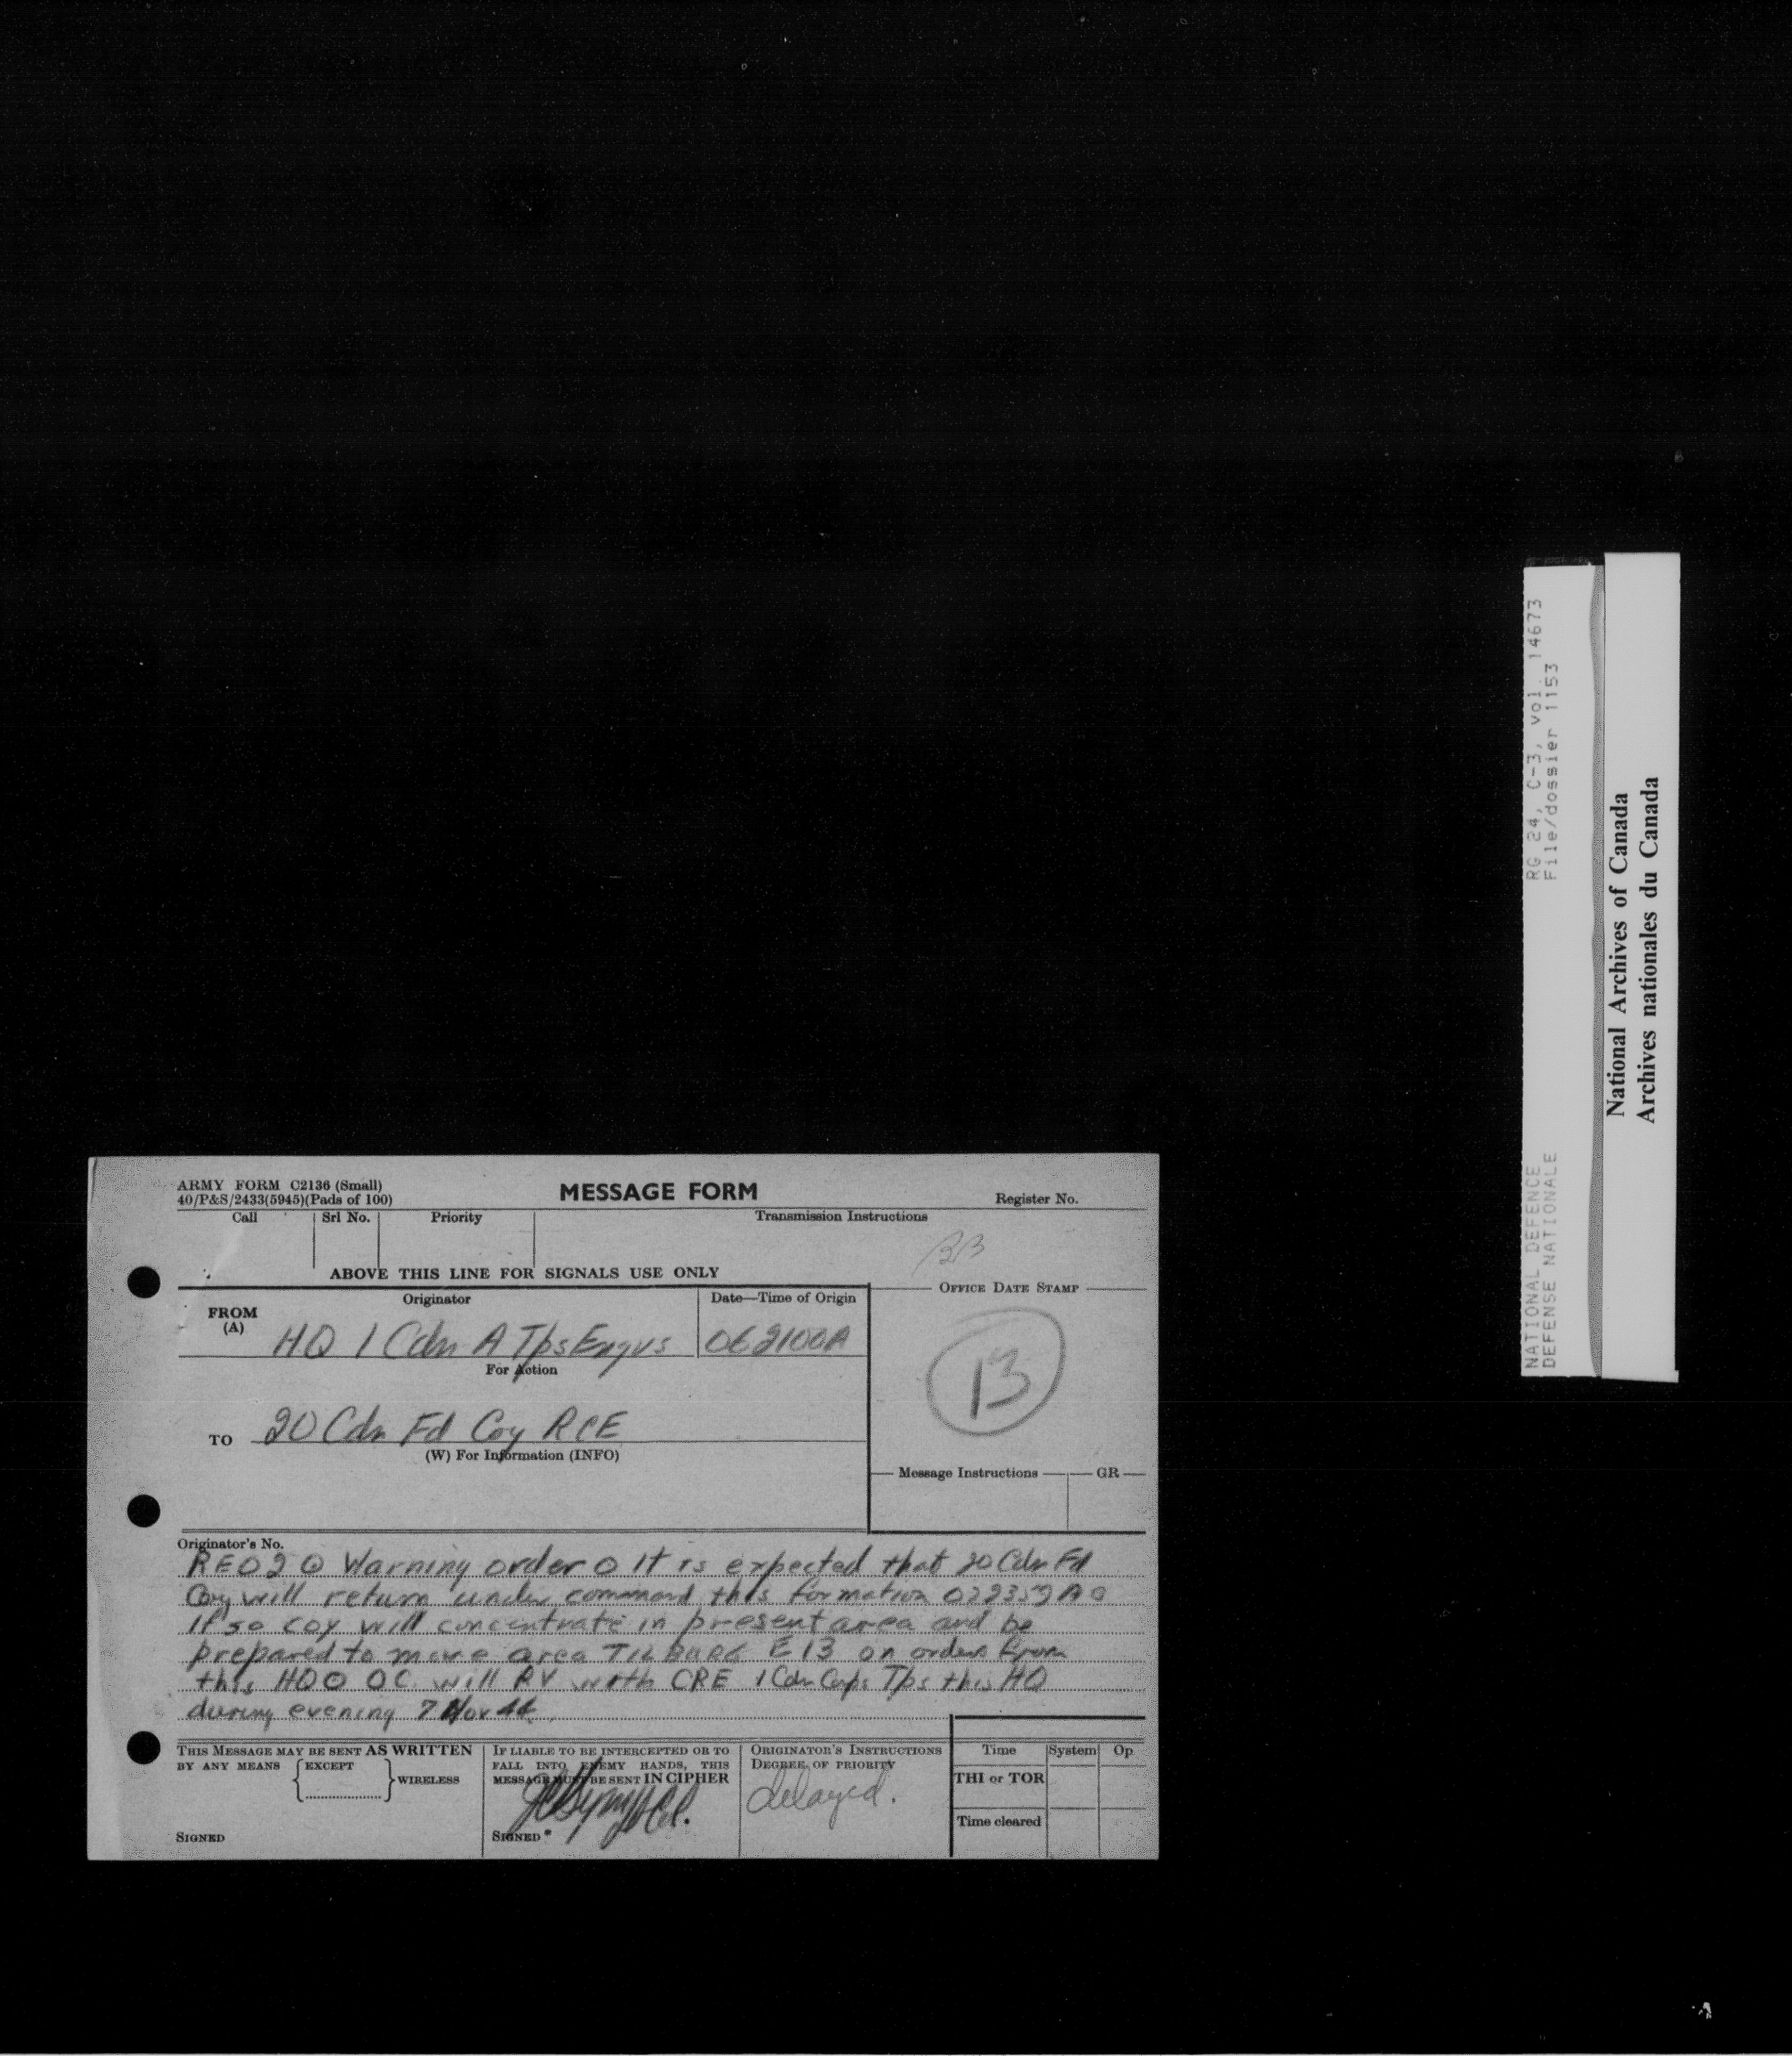 ARMY FORM C2136 (Small)
40/P&S/2433(5945)(Pads of 100)
MESSAGE FORM
Register No.
Call Srl No. Priority Transmission Instructions
ABOVE THIS LINE FOR SIGNALS USE ONLY
OFFICE DATE STAMP
Originator
Date—Time of Origin
FROM
(A)
HQ 1 Cdn A Tps Engrs 062100A
For Action
13
TO 20 Cdn Fd Coy RCE
(W) For Information (INFO)
Message Instructions GR
Originator's No.
RE02 O Warning order O It is expected that 20 Cdn Fd
Coy will return under command this formation A O
If so coy will concentrate in present area and be
prepared to move area TILBURG E13 on orders from
this HQ O OC will RV with CRE 1 Cdn Corps Tps this HQ
during evening 7 Nov 44.
THIS MESSAGE MAY BE SENT AS WRITTEN
BY ANY MEANS EXCEPT WIRELESS
SIGNED
IF LIABLE TO BE INTERCEPTED OR TO
FALL INTO ENEMY HANDS, THIS
MESSAGE MUST BE SENT IN CIPHER
SIGNED
ORIGINATOR'S INSTRUCTIONS
DEGREE OF PRIORITY
delayed.
Time System Op
THI or TOR
Time cleared
RG 24, C-3, vol. 14673
File/dossier 1153
NATIONAL DEFENCE
DEFENSE NATIONALE
National Archives of Canada
Archives nationales du Canada